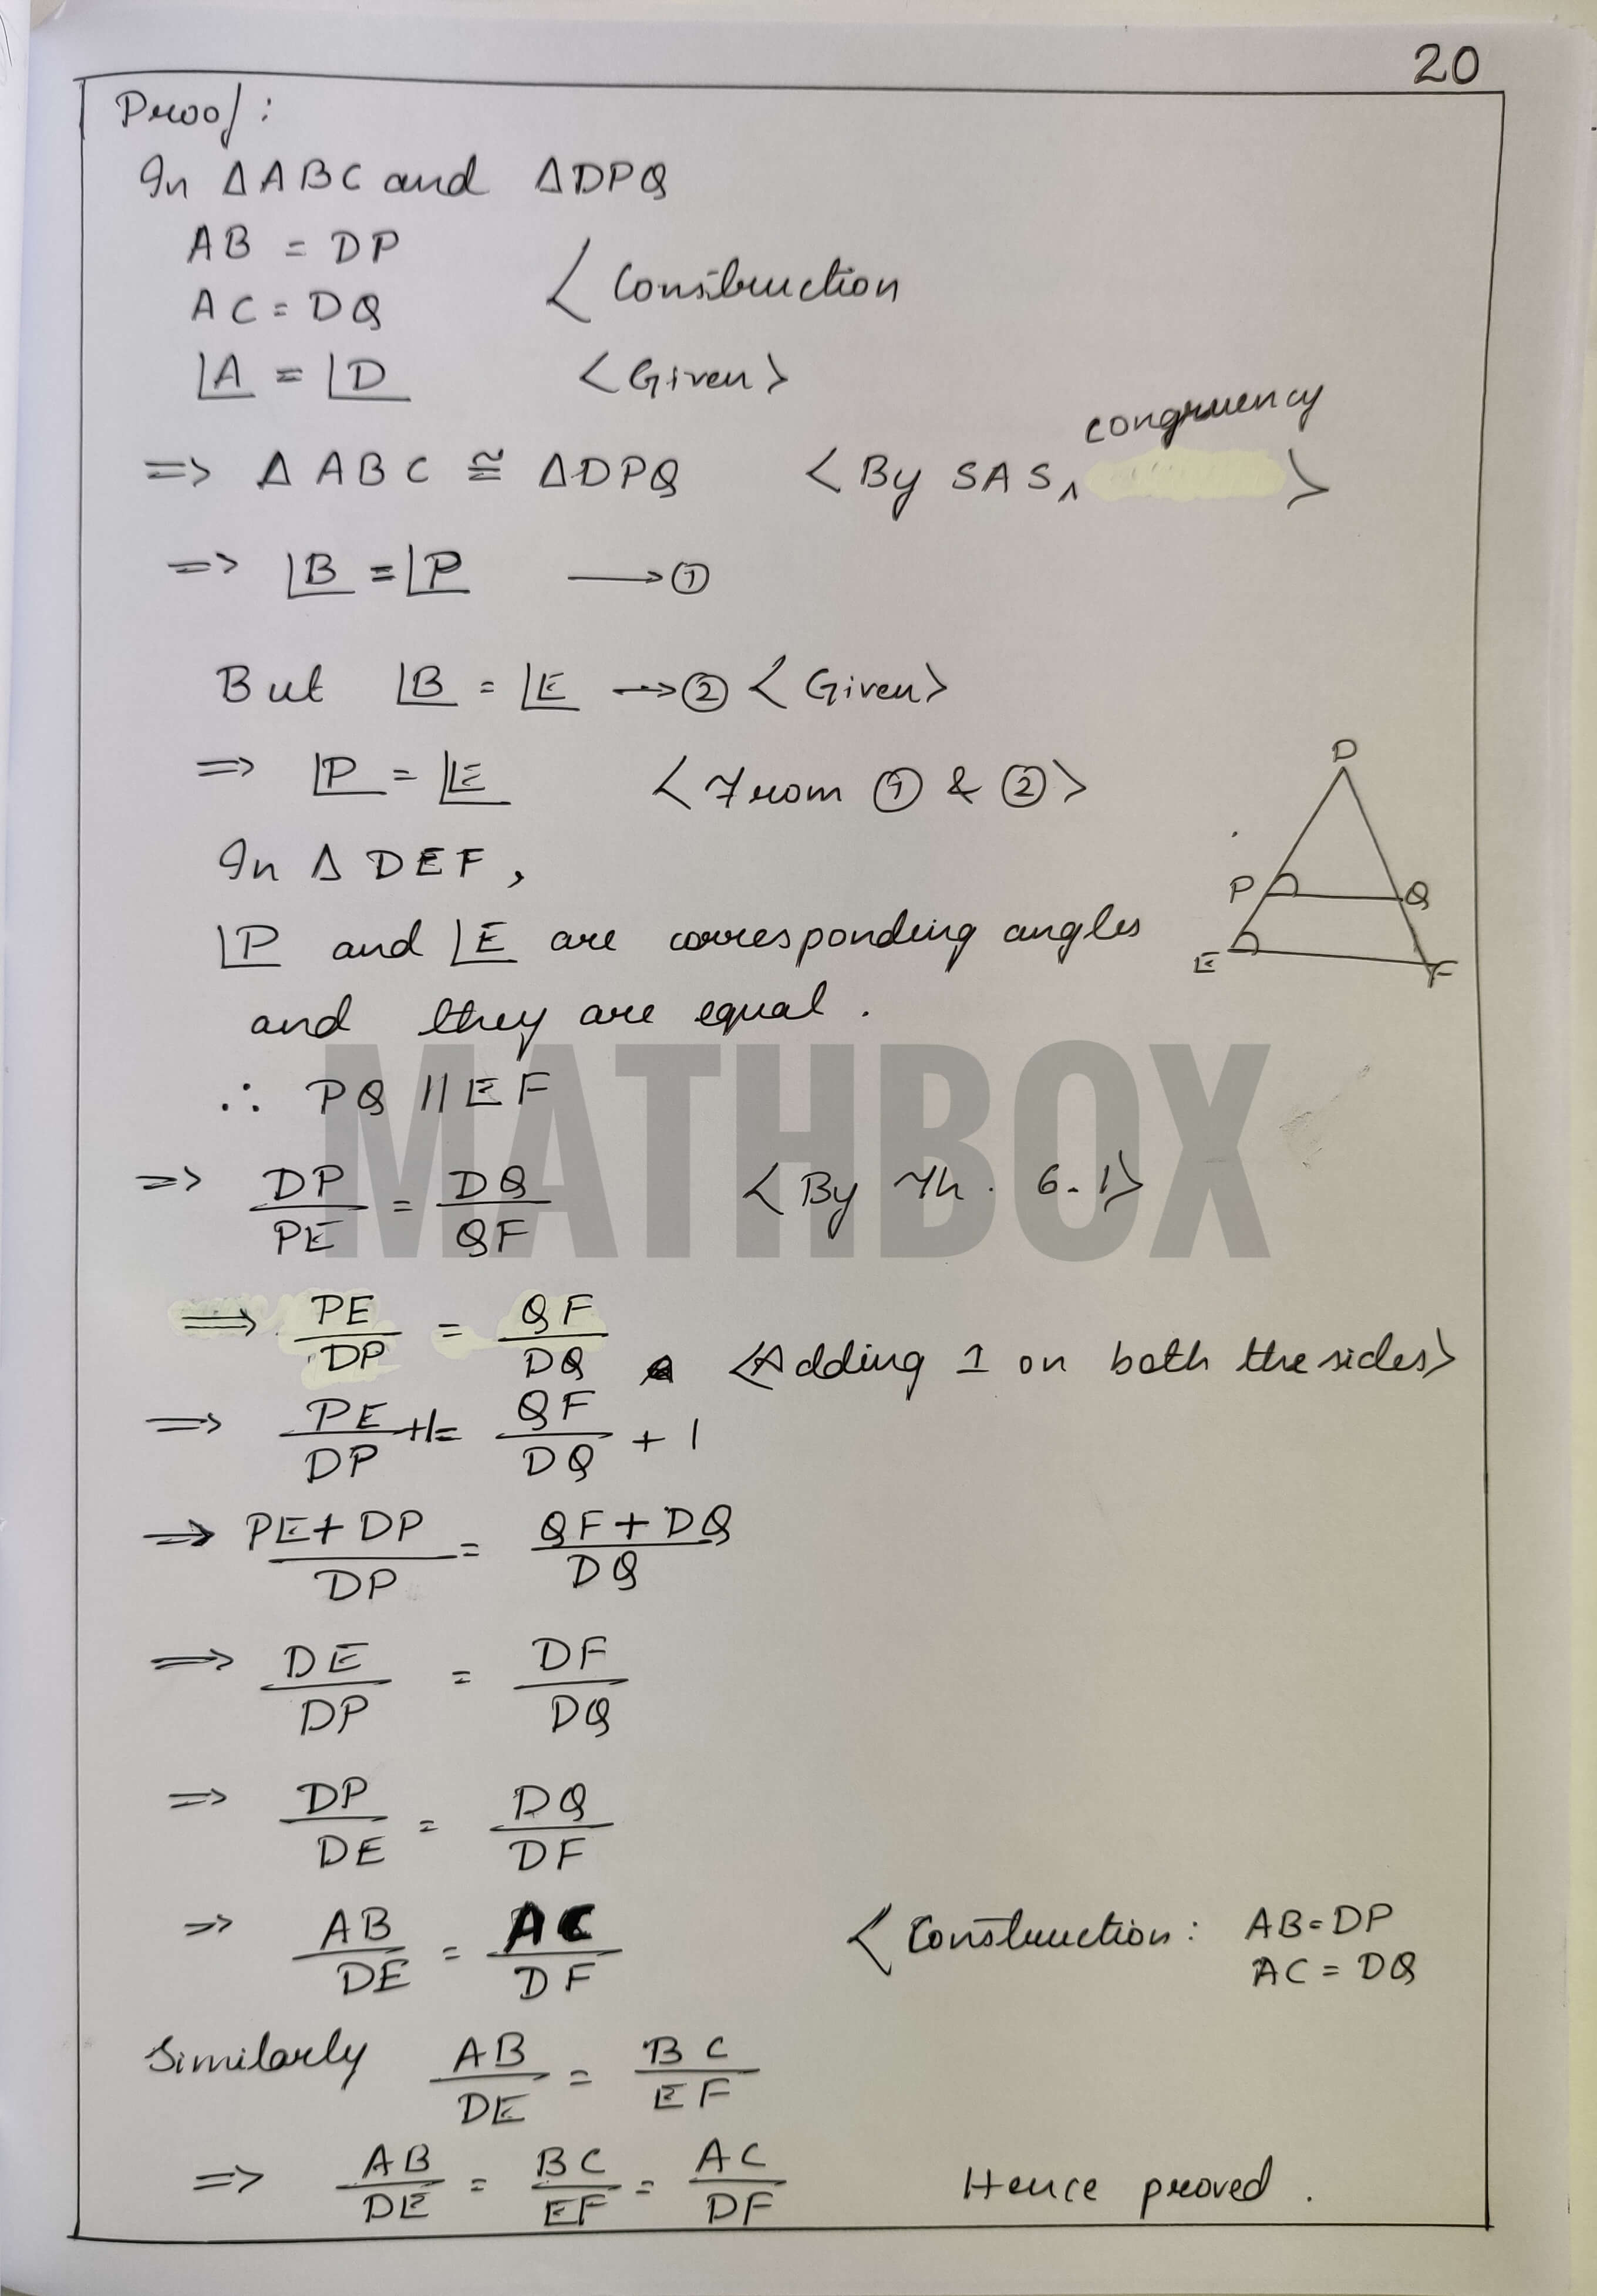 20
Proof:
In ΔABC and ΔDPQ
AB = DP
AC = DQ
< Construction
∠A = ∠D <Given>
=> ΔABC ≅ ΔDPQ <By SAS‸ congruency>
=> ∠B = ∠P ⟶ ①
But ∠B = ∠E ⟶ ② <Given>
=> ∠P = ∠E <From ① & ②>
In ΔDEF,
∠P and ∠E are corresponding angles
and they are equal.
D
P
Q
E
F
∴ PQ || EF
MATHBOX
=> DP/PE = DQ/QF <By Th. 6.1>
=> PE/DP = QF/DQ <Adding 1 on both the sides>
=> PE/DP +1 = QF/DQ + 1
=> PE+DP/DP = QF+DQ/DQ
=> DE/DP = DF/DQ
=> DP/DE = DQ/DF
=> AB/DE = AC/DF < Construction: AB=DP
AC = DQ
Similarly AB/DE = BC/EF
=> AB/DE = BC/EF = AC/DF Hence proved.